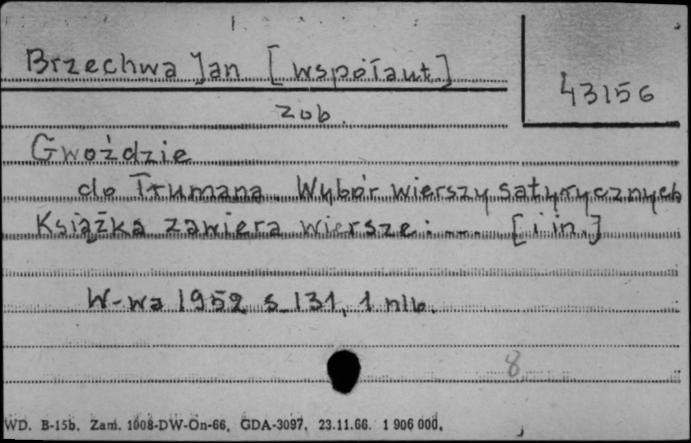 Brzechwa Jan [współaut.]
43156
zob.
Gwoździe
do Trumana. Wybór wierszy satyrycznych
Książka zawiera wiersze: ... [i in.]
W-wa 1952 s. 131, 1 nlb.
8
WD. B-15b. Zam. 1008-DW-On-66, GDA-3097, 23.11.66. 1 906 000,